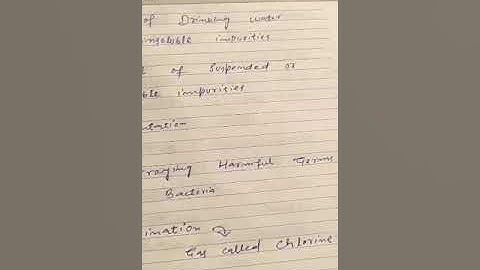 of Drinking water
insoluble impurities
of Suspended or
ble impurities
ntation
roying Harmful Germs
Bacteria
ination
Gas called Chlorine